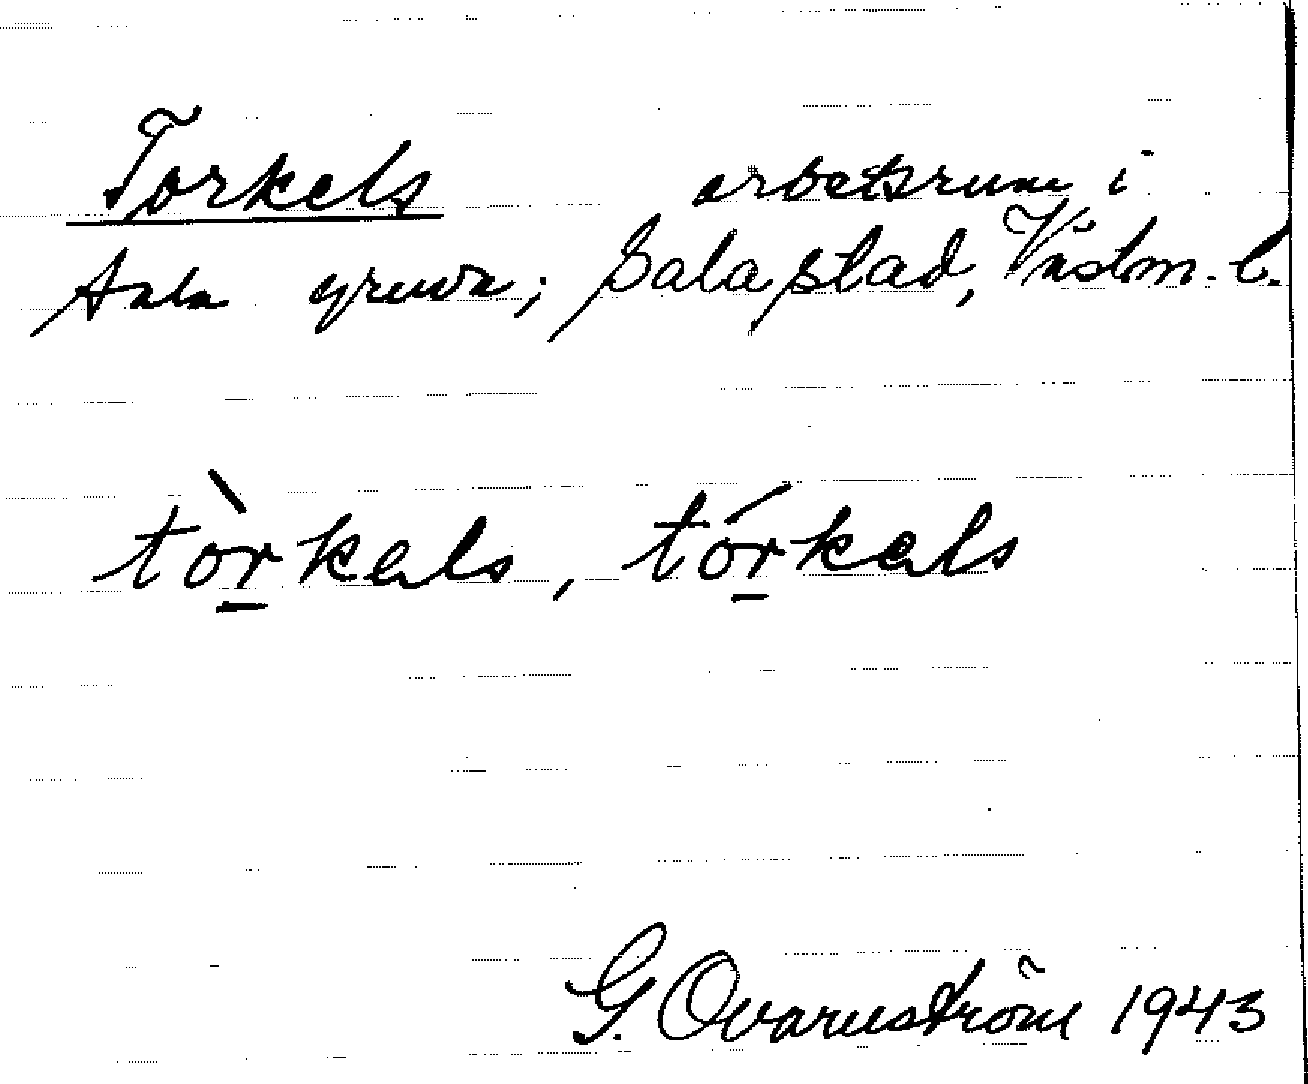 Torkels arbetsrum i
Sala gruva; Sala stad, Västm. l.
tòr̲kəls, tór̲kəls
G. Qvarnström 1943